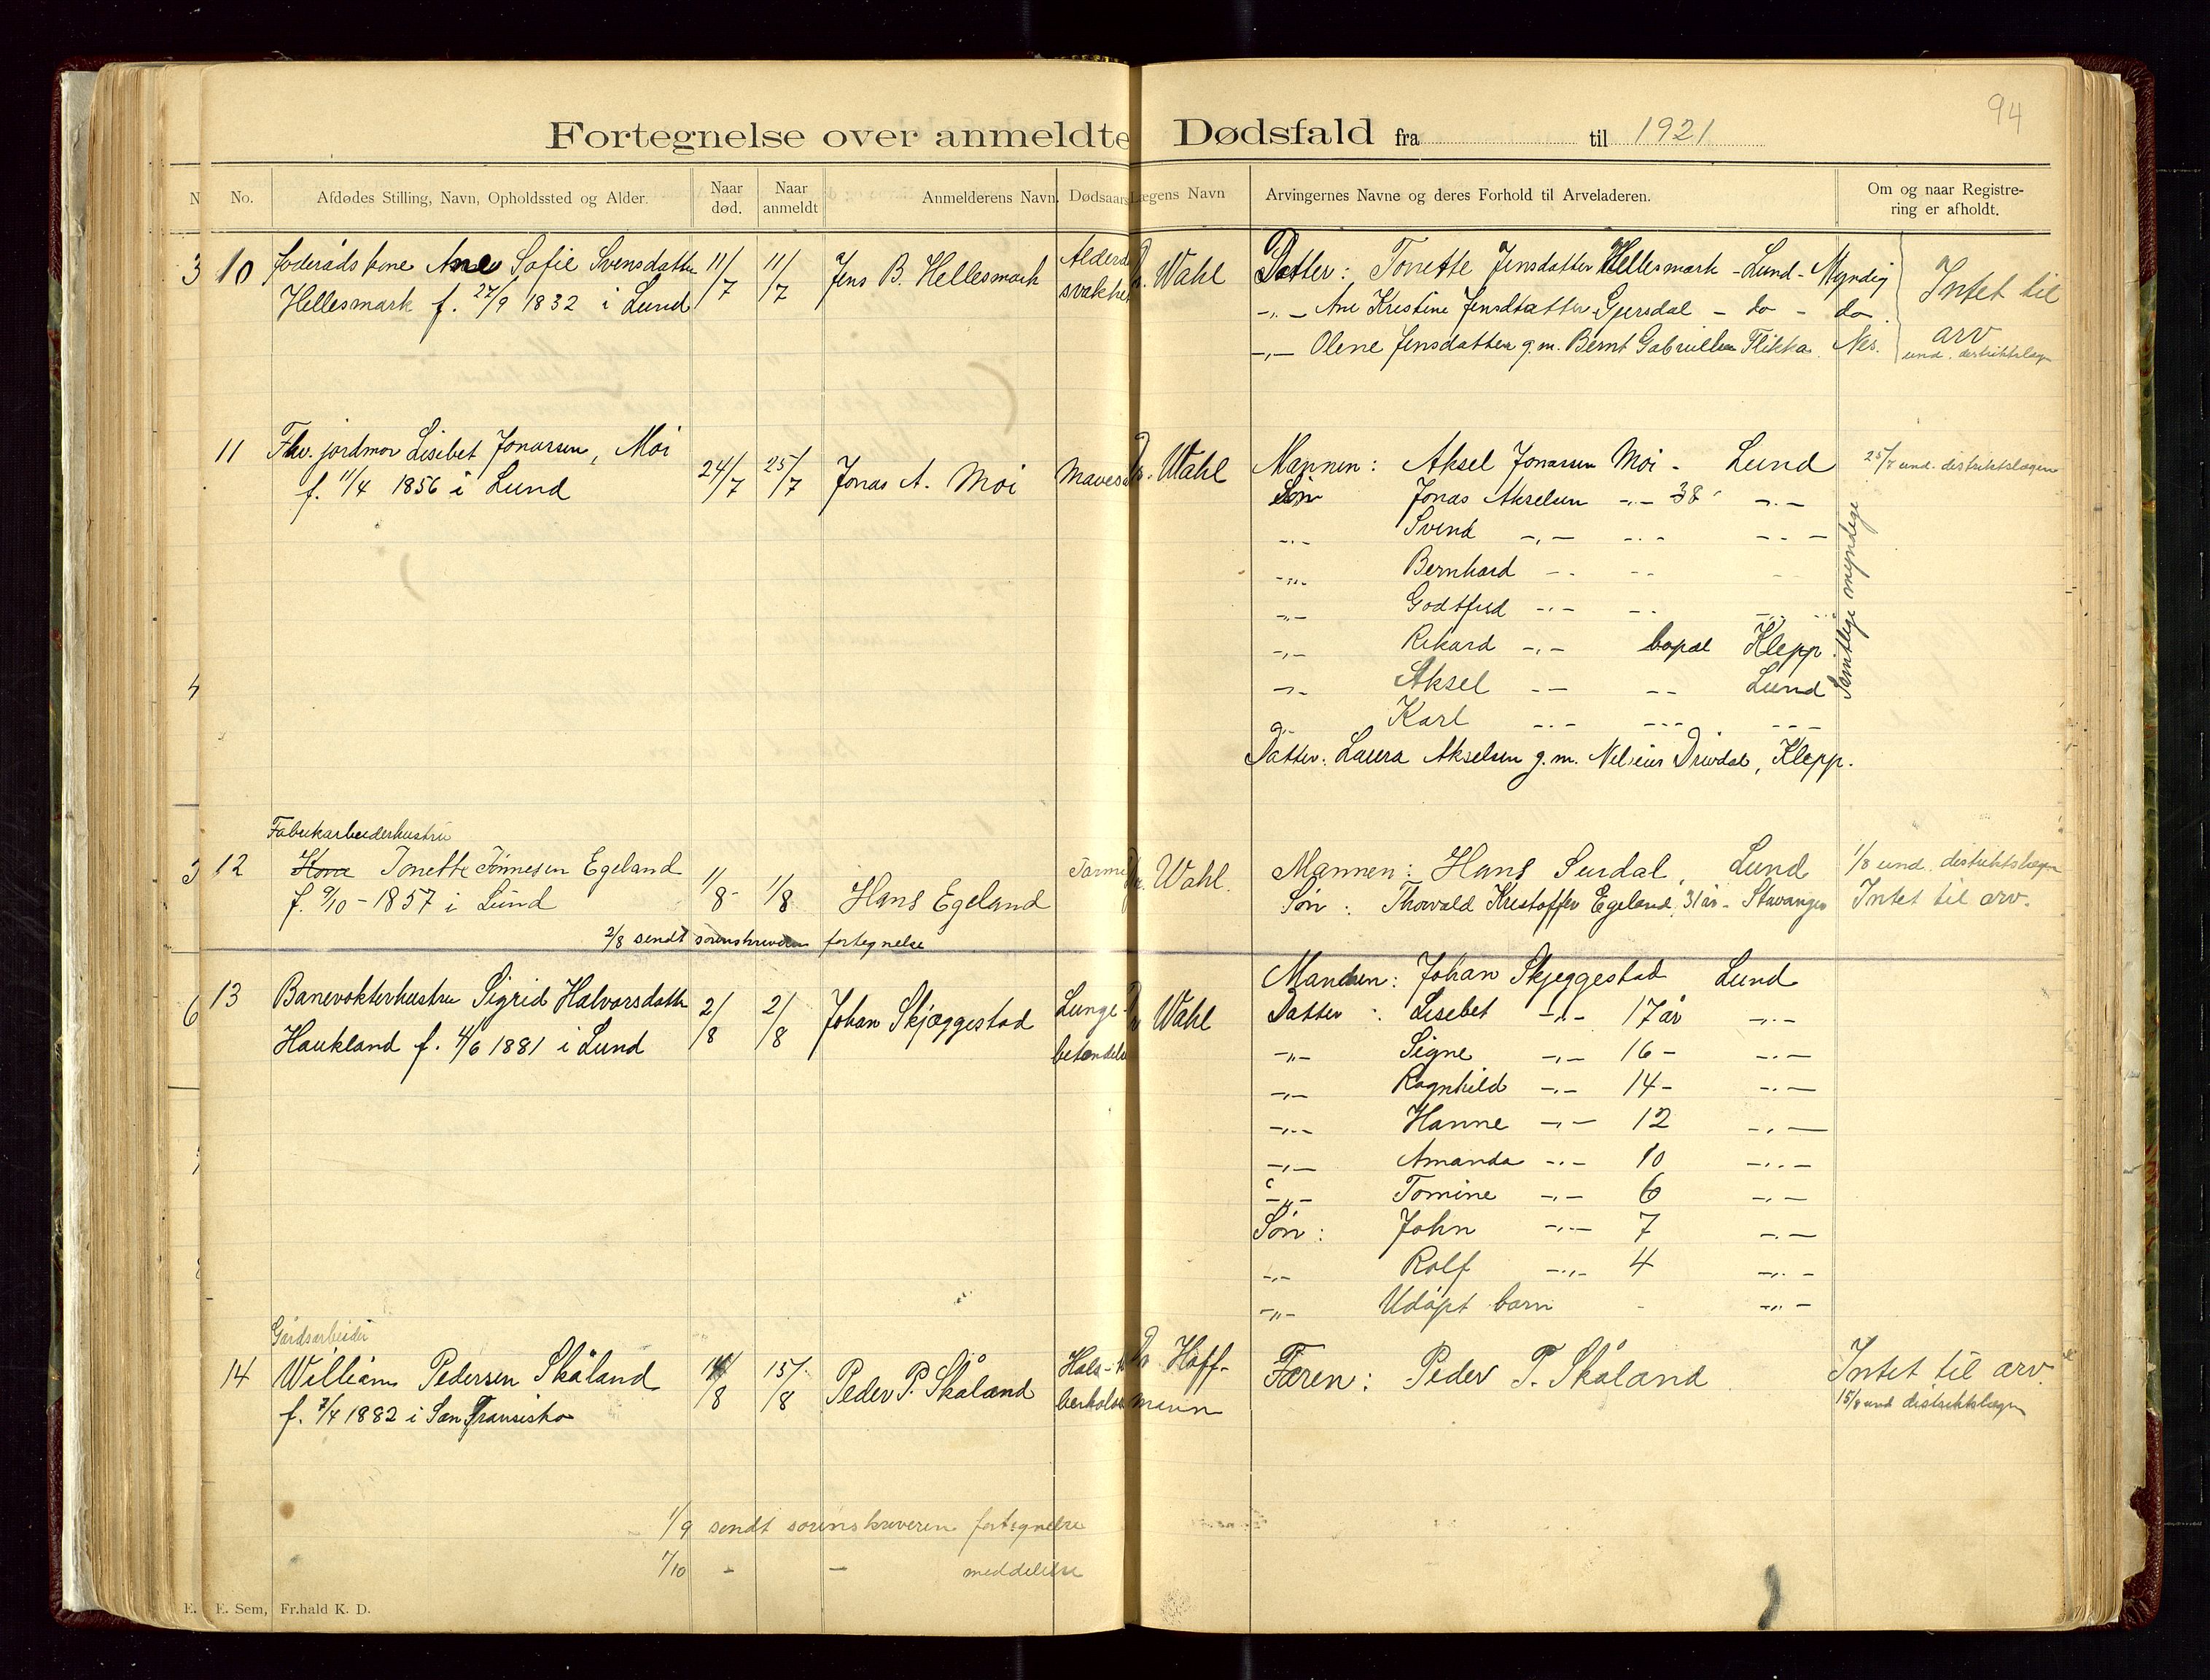 94
Fortegnelse over anmeldte Dødsfald fra til 1921
No. Afdødes Stilling, Navn, Opholdssted og Alder. Naar død. Naar anmeldt Anmelderens Navn. Dødsaars Lægens Navn Arvingernes Navne og deres Forhold til Arveladeren. Om og naar Registrering er afholdt.
10 föderåds kone Ane Sofie Svensdatter 11/7 11/7 Jens B. Hellesmark Alderd Wahl Datter: Tonette Jensdatter Hellesmark - Lund - Myndig Intet til
Hellesmark f. 27/9 1832 i Lund svakhe -"- Ane Kristine Jensdatter Gyersdal - do - do arv
-"- Olene Jensdatter g.m. Bernt Gabrielsen Flikka. Nes. und. distriktslægen
11 Fhv. jordmor Lisebet Jonassen, Moi 24/7 25/7 Jonas A. Moi Maves Dr. Wahl Mannen: Aksel Jonassen Moi - Lund 25/7 und. distriktslægen
f. 11/4 1856 i Lund Søn Jonas Akselsen -"- 38 -"-
-"- Svend -"- -"- -"-
-"- Bernhard -"- -"- -"-
-"- Godtfred -"- -"- -"-
-"- Rikard -"- bopæl Klepp
-"- Aksel -"- -"- Lund
-"- Karl -"- -"- -"-
Samtlige myndige
Datter: Laura Akselsen g.m. Nelius Drivdal, Klepp.
Fabrikarbeiderhustru
12 Kone Tonette Tønnesen Egeland 1/8 1/8 Hans Egeland Tarm Wahl. Mannen: Hans Surdal, Lund 1/8 und. distriktslægen
f. 9/10 - 1857 i Lund Søn: Thorvald Kristoffer Egeland, 31 år - Stavanger Intet til arv.
2/8 sendt sorenskriveren fortegnelse
13 Banevokterhustru Sigrid Halvorsdatter 2/8 2/8 Johan Skjæggestad Lunge Wahl Manden: Johan Skjeggestad Lund
Haukland f. 4/6 1881 i Lund betendels Datter: Lisebet -"- 17 år -"-
-"- Signe -"- 16 - -"-
-"- Ragnhild -"- 14 - -"-
-"- Hanne -"- 12 -"-
-"- Amanda -"- 10 -"-
-"- Tomine -"- 6 -"-
Søn: John -"- 7 -"-
-"- Rolf -"- 4 -"-
-"- Udøpt barn - -"-
Gårdsarbeider
14 William Pedersen Skåland 14/8 15/8 Peder P. Skåland Hals- Dr Hoff- Faren: Peder P. Skåland Intet til arv.
f. 7/4 1882 i San Fransisko berkolos mann 15/8 und distriktslægen
1/9 sendt sorenskriveren fortegnelse
7/10 - - meddelelse
E. Sem, Fr.hald K. D.